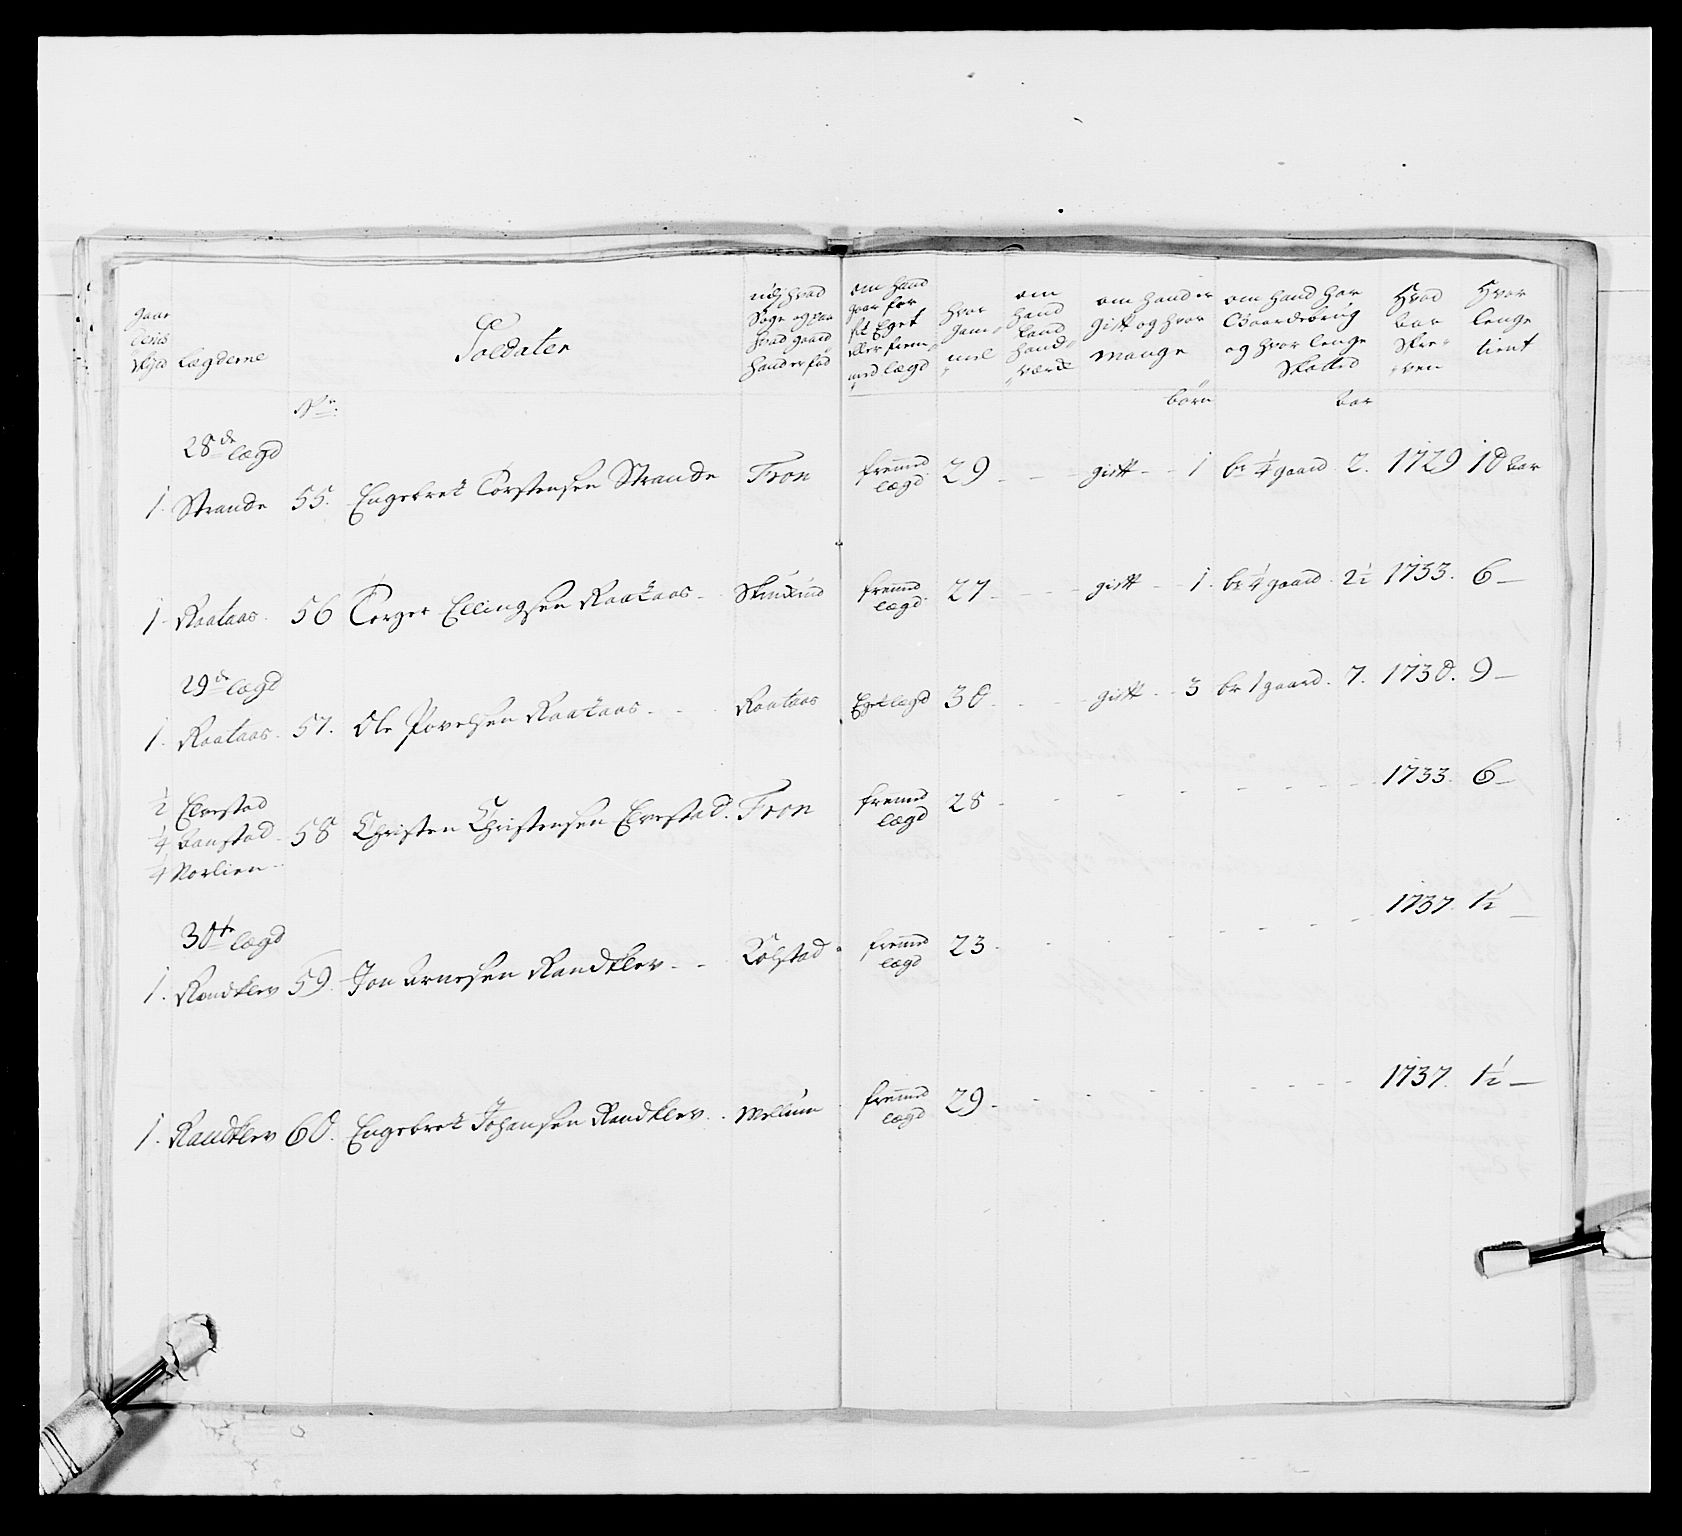 Gaar
denis
skyld Lægderne
Nr.
Soldater
udj hvad
Sogn og paa
hvad gaard
hand er fød
om hand
staar for
sit Eget
eller frem-
med lægd
hvor
gam-
mel
om
hand
kand
hand-
værck
om hand er
gift og hvor
mange
børn
om hand har
Gaardebrug
og hvor lenge
Aar
Hvad
Aar
Skre-
ven
Hvor
lenge
tient
28de lægd
1. Strande 55. Engebret Torstensen Strande Fron fremmed lægd 29 - - - gift - - 1 br 1/4 gaard 2. 1729 10 Aar
1. Raataas. 56 Torger Ellingsen Raataas - fremmed lægd. 27 - - - gift - - 1. br 1/4 gaard. 2 1/2 1733. 6 -
29de lægd
1. Raataas. 57. Ole Povelsen Raataas - - Raataas Eget lægd 30 - - - gift - - 3 br 1 gaard. 7. 1730. 9 -
1/2 Elvestad
1/4 Aanstad
1/4 Norlien
58 Christen Christensen Elvestad. Fron fremmed lægd 28 - - - - - - - 1733. 6 -
30te lægd
1. Randklev 59. Jon Arnesen Randklev - - Kolstad fremmed lægd 23 - - - - - - - 1737. 1 1/2 -
1. Randklev 60. Engebret Johansen Randklev. - Mellum fremmed lægd 29 - - - - - - - 1737. 1 1/2 -